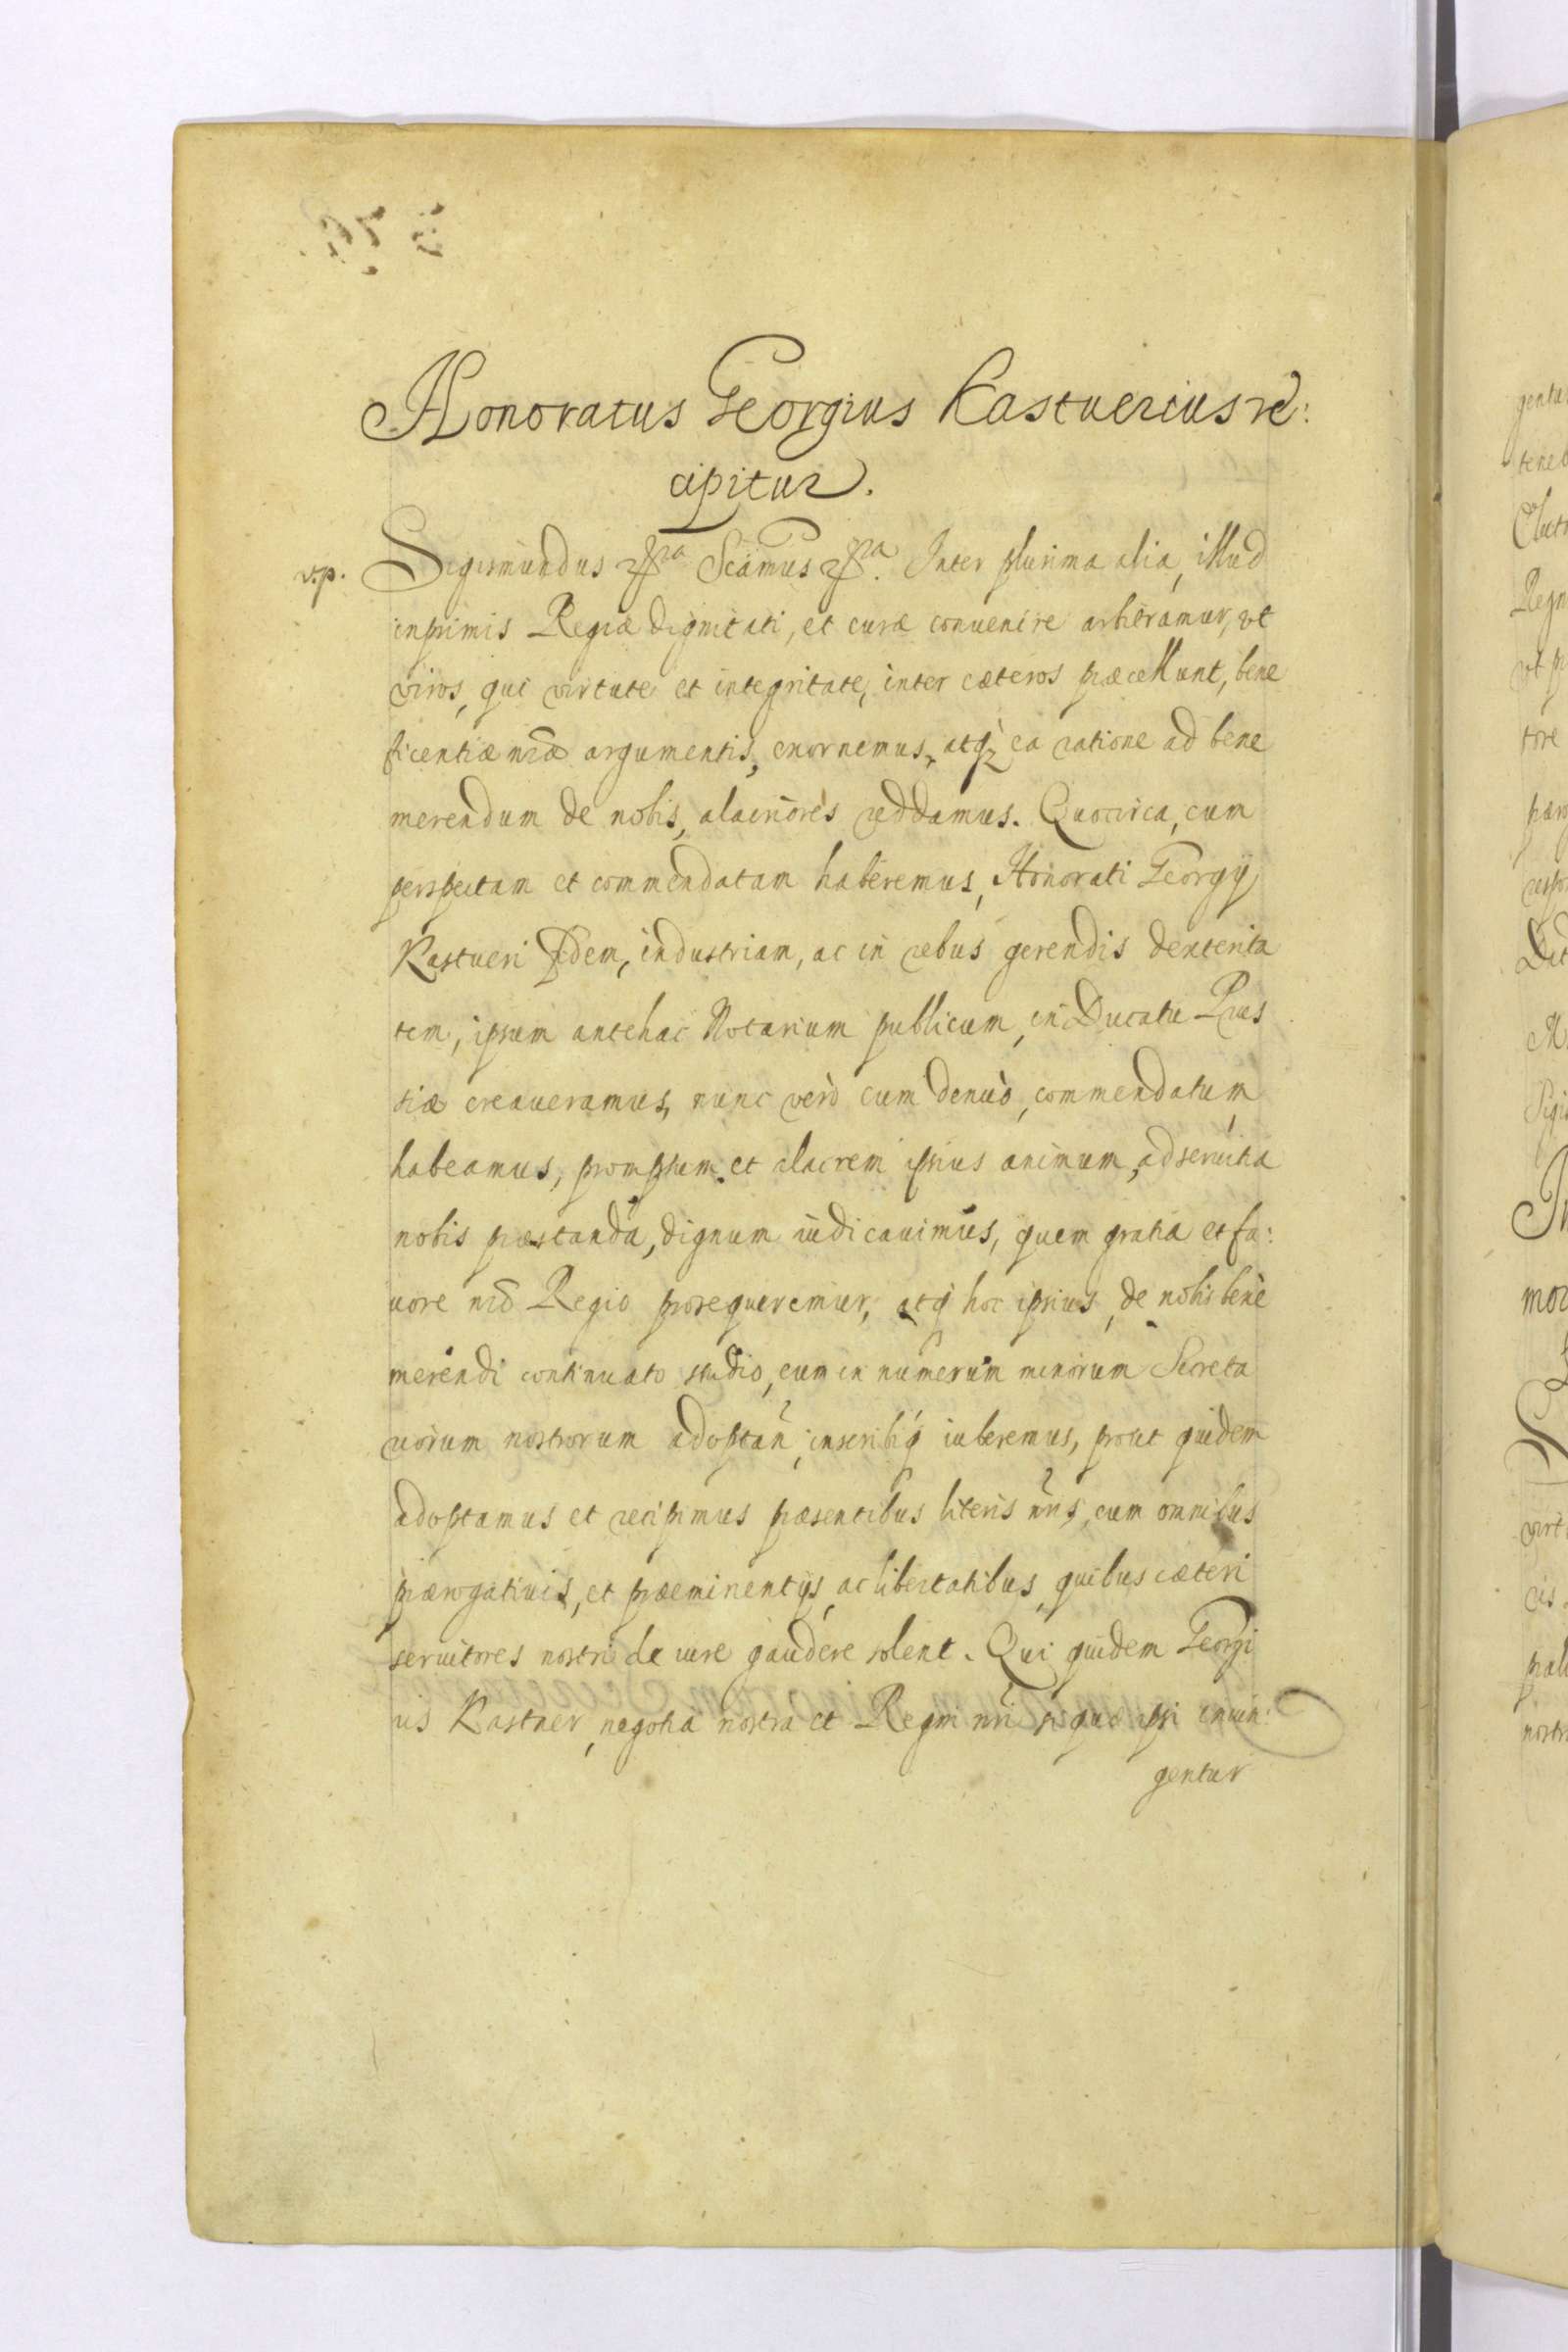 Honoratus Georgius Kastnerius re:
cipitur.
v.p.
Sigismundus &ra Sciamus &ra. Inter plurima alia, illud
inprimis Regiæ dignitati, et curæ convenire arbitramur, vt
viros, qui virtute et integritate, inter cæteros præcellunt, bene
ficentiæ nr̃æ argumentis, exornemus, atq₃ ea ratione ad bene
merendum de nobis, alacriores reddamus. Quocirca, cum
perspectam et commendatam haberemus, Honorati Georgij
Kastneri fidem, industriam, ac in rebus gerendis dexterita
tem, ipsum antehac Notarium publicum, in Ducatu Prus
siæ creaueramus, nunc verò cum denuò, commendatum
habeamus, promptum et alacrem ipsius animum, ad seruitia
nobis præstanda, dignum iudicauimus, quem gratia et fa:
uore nr̃o Regio prosequeremur, atq̃ hoc ipsius, de nobis benè
merendi continuato studio, eum in numerum minorum Secreta
riorum nostrorum adoptari, inscribiq́ iuberemus, prout quidem
adoptamus et recipimus præsentibus literis nr̃is, cum omnibus
prærogatiuis, et præeminentijs, ac libertatibus, quibus cæteri
seruitores nostri de iure gaudere solent. Qui quidem Georgi
us Kastner, negotia nostra et Regni nr̃i si quæ ipsi iniun:
gentur